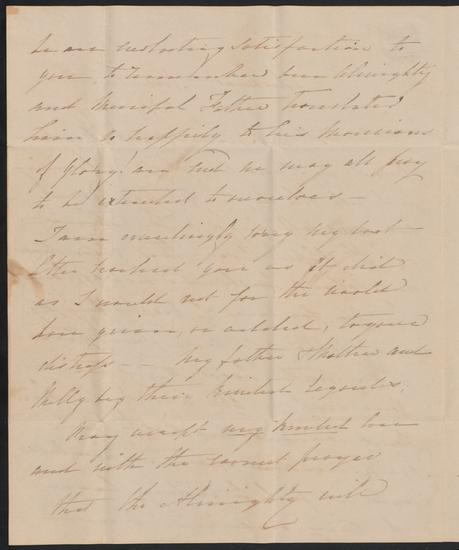 be an everlasting satisfaction to
you to remember our Almighty
and Merciful Father translated
him so happily to his Mansions
of Glory! an end we may all pray
to be extended to ourselves —
I am exceedingly sorry my last
letter reached you as it did
as I would not for the world
have given, or added, to your
distress — — My father Mother and
beg their kindest regards.
Pray accept my kindest love
and with the earnest prayer
that the Almighty will